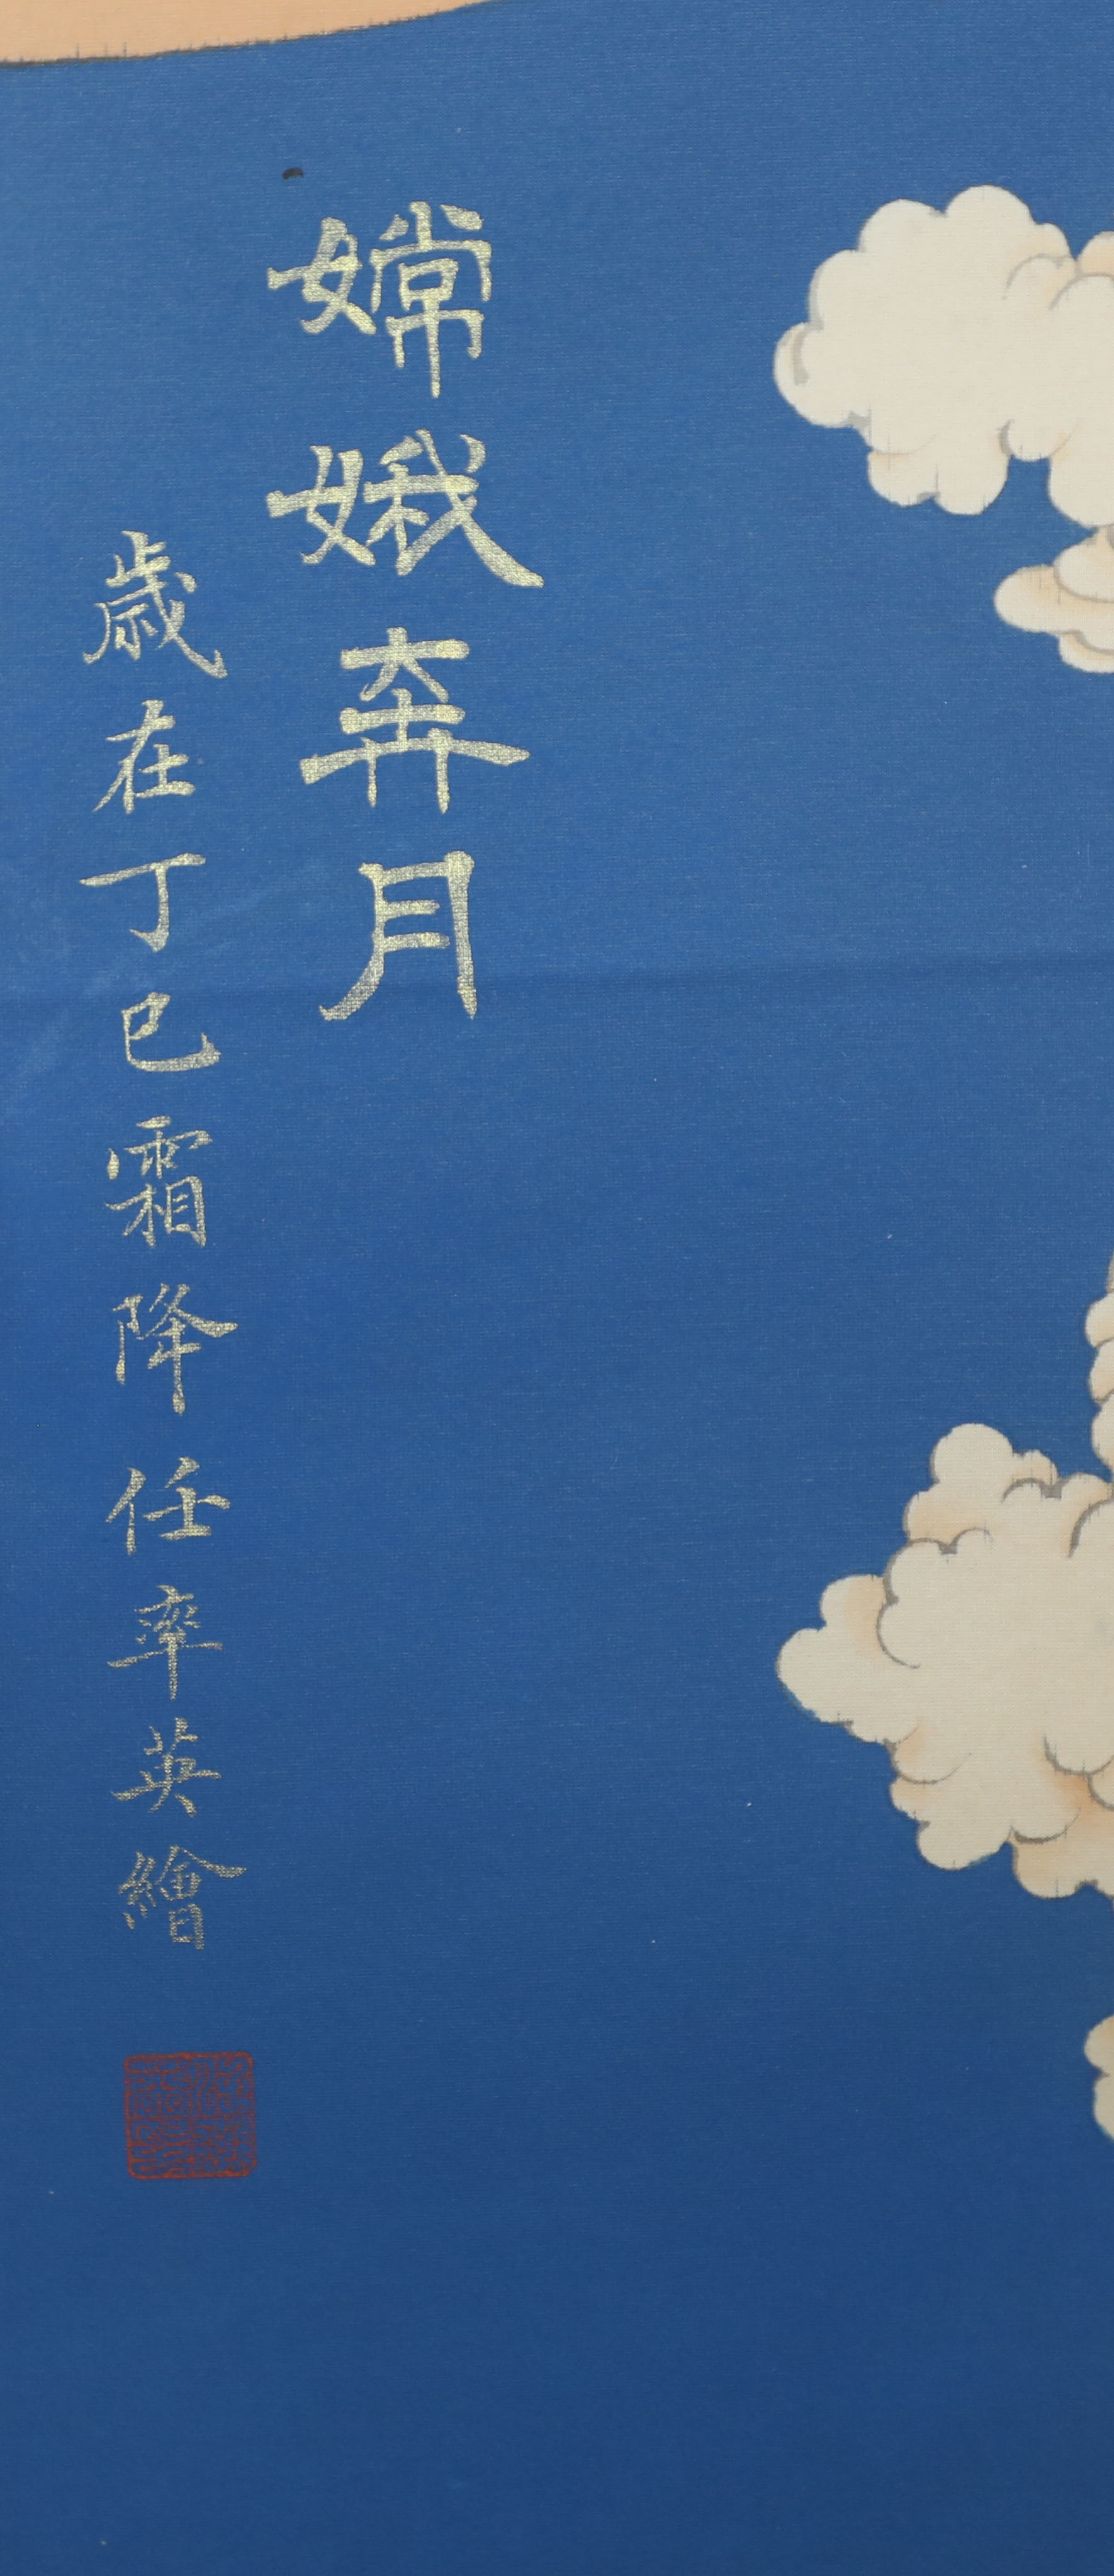 嫦娥奔月
歳在丁巳霜降任率英繪